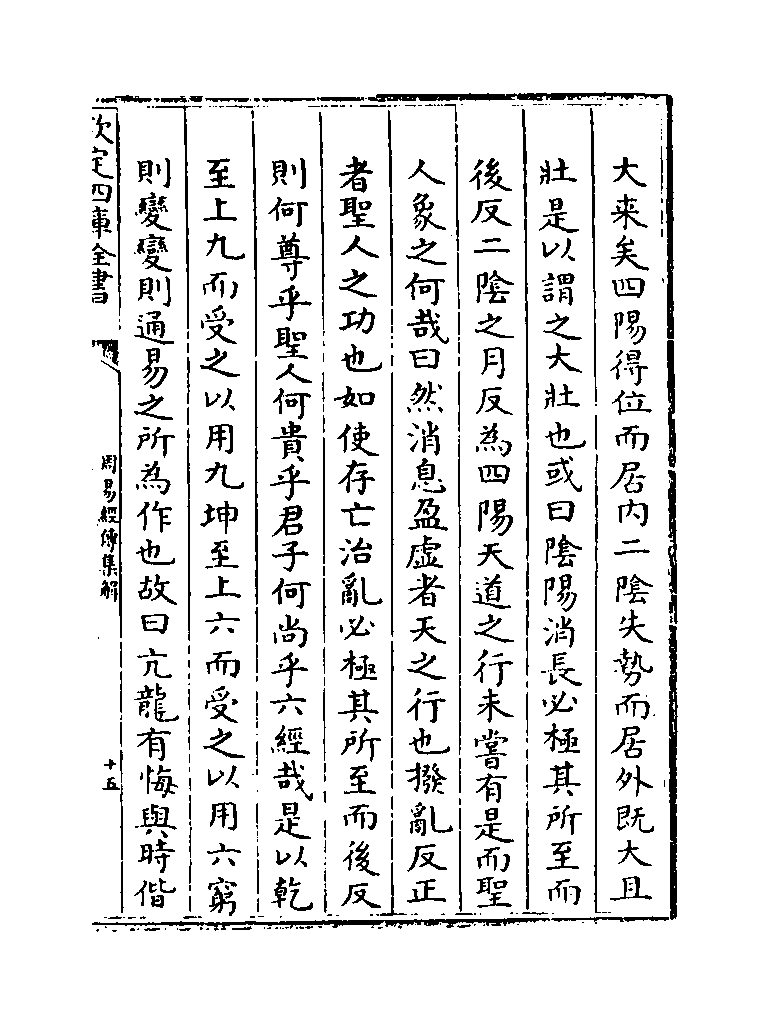 大来矣四陽得位而居内二陰失勢而居外既大且
壯是以謂之大壯也或曰陰陽消長必極其所至而
後反二陰之月反為四陽天道之行未嘗有是而聖
人象之何哉曰然消息盈虚者天之行也撥亂反正
者聖人之功也如使存亡治亂必極其所至而後反
則何尊乎聖人何貴乎君子何尚乎六經哉是以乾
至上九而受之以用九坤至上六而受之以用六窮
則變變則通易之所為作也故曰亢龍有悔與時偕
欽定四庫全書
周易經傳集解
十五